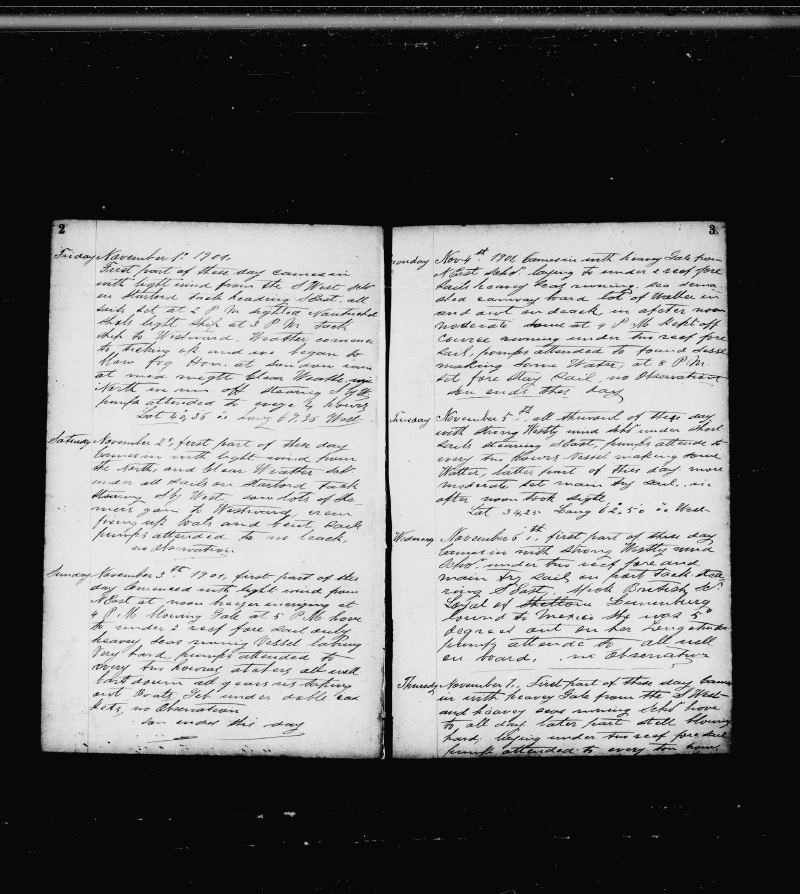 2
Friday November 1st 1901.
First part of these day comes in
with light wind from the S West Schr
on Starford tack heading S East, all
sails set at 2 P M sighted Nantucket
shols light ship at 3 P M Tack
ship to Westward. Weather comence
to and we began to
blow fog Horn. at sundown
at mid nigth Clear Weather
North in run off stearing S
pumps attended to every 4 hours
Lat 40,35 Long 69.35 West
Saturday November 2, first part of these day
Comes in with light wind from
the North, and Clear Weather Schr
under all sails on Starford tack
Stearing S by West, saw lots of Ste-
mers goin to Westward, crew
fixing up boats and bent sails
pumps attended to no leack.
no Observation
Sunday November 3th 1901, first part of this
day Comenced with light wind from
N East at noon breeze incrising at
4 P M blowing Gale at 5 P M hove
to under 2 reef fore sail only
heavey seas runing Vessel laboring
Very hard, pumps attended to
every two houers all well
down all
out Boats, Jeb under doble
no Observation
son ends this day
3
Monday Nov 4th 1901 Comes in with heavey Gale from
N East Schr laying to under 2 reef fore
sails heavey Seas runing. sea
lot of Watter in
and out on deack in after noon
moderate at 4 P M Kept off
Course runing under two reef fore
sail, pumps attended to found Vessel
making some Water, at 8 P M
set fore Stay sail, no Observation
son ends this day
November 5th, all thruout of these day
with strong Westly wind Schr under Short
sails stearing S East, pumps attende to
every two houers Vessel making some
Watter, latter part of thies day more
moderate set main try sail. in
after noon took sight
Lat 34,25 Long 62.50 West
November 6th, first part of these day
Comes in with strong Westly wind
Schr under two reef fore and
main try sail on port tack stea
ring S East. British Sc
Loyal of Shelton Lunenburg
bound to Mexico She was 5
degrees out on her Longetude
pumps attende to all well
on board, no Observation
Thursday November 7. First part of these day Comes
in with heavey Gale from the S West
and heavey seas runing Schr hove
to all day later part still blowing
hard; laying under two reef fore sail
pumps attended to every two hours